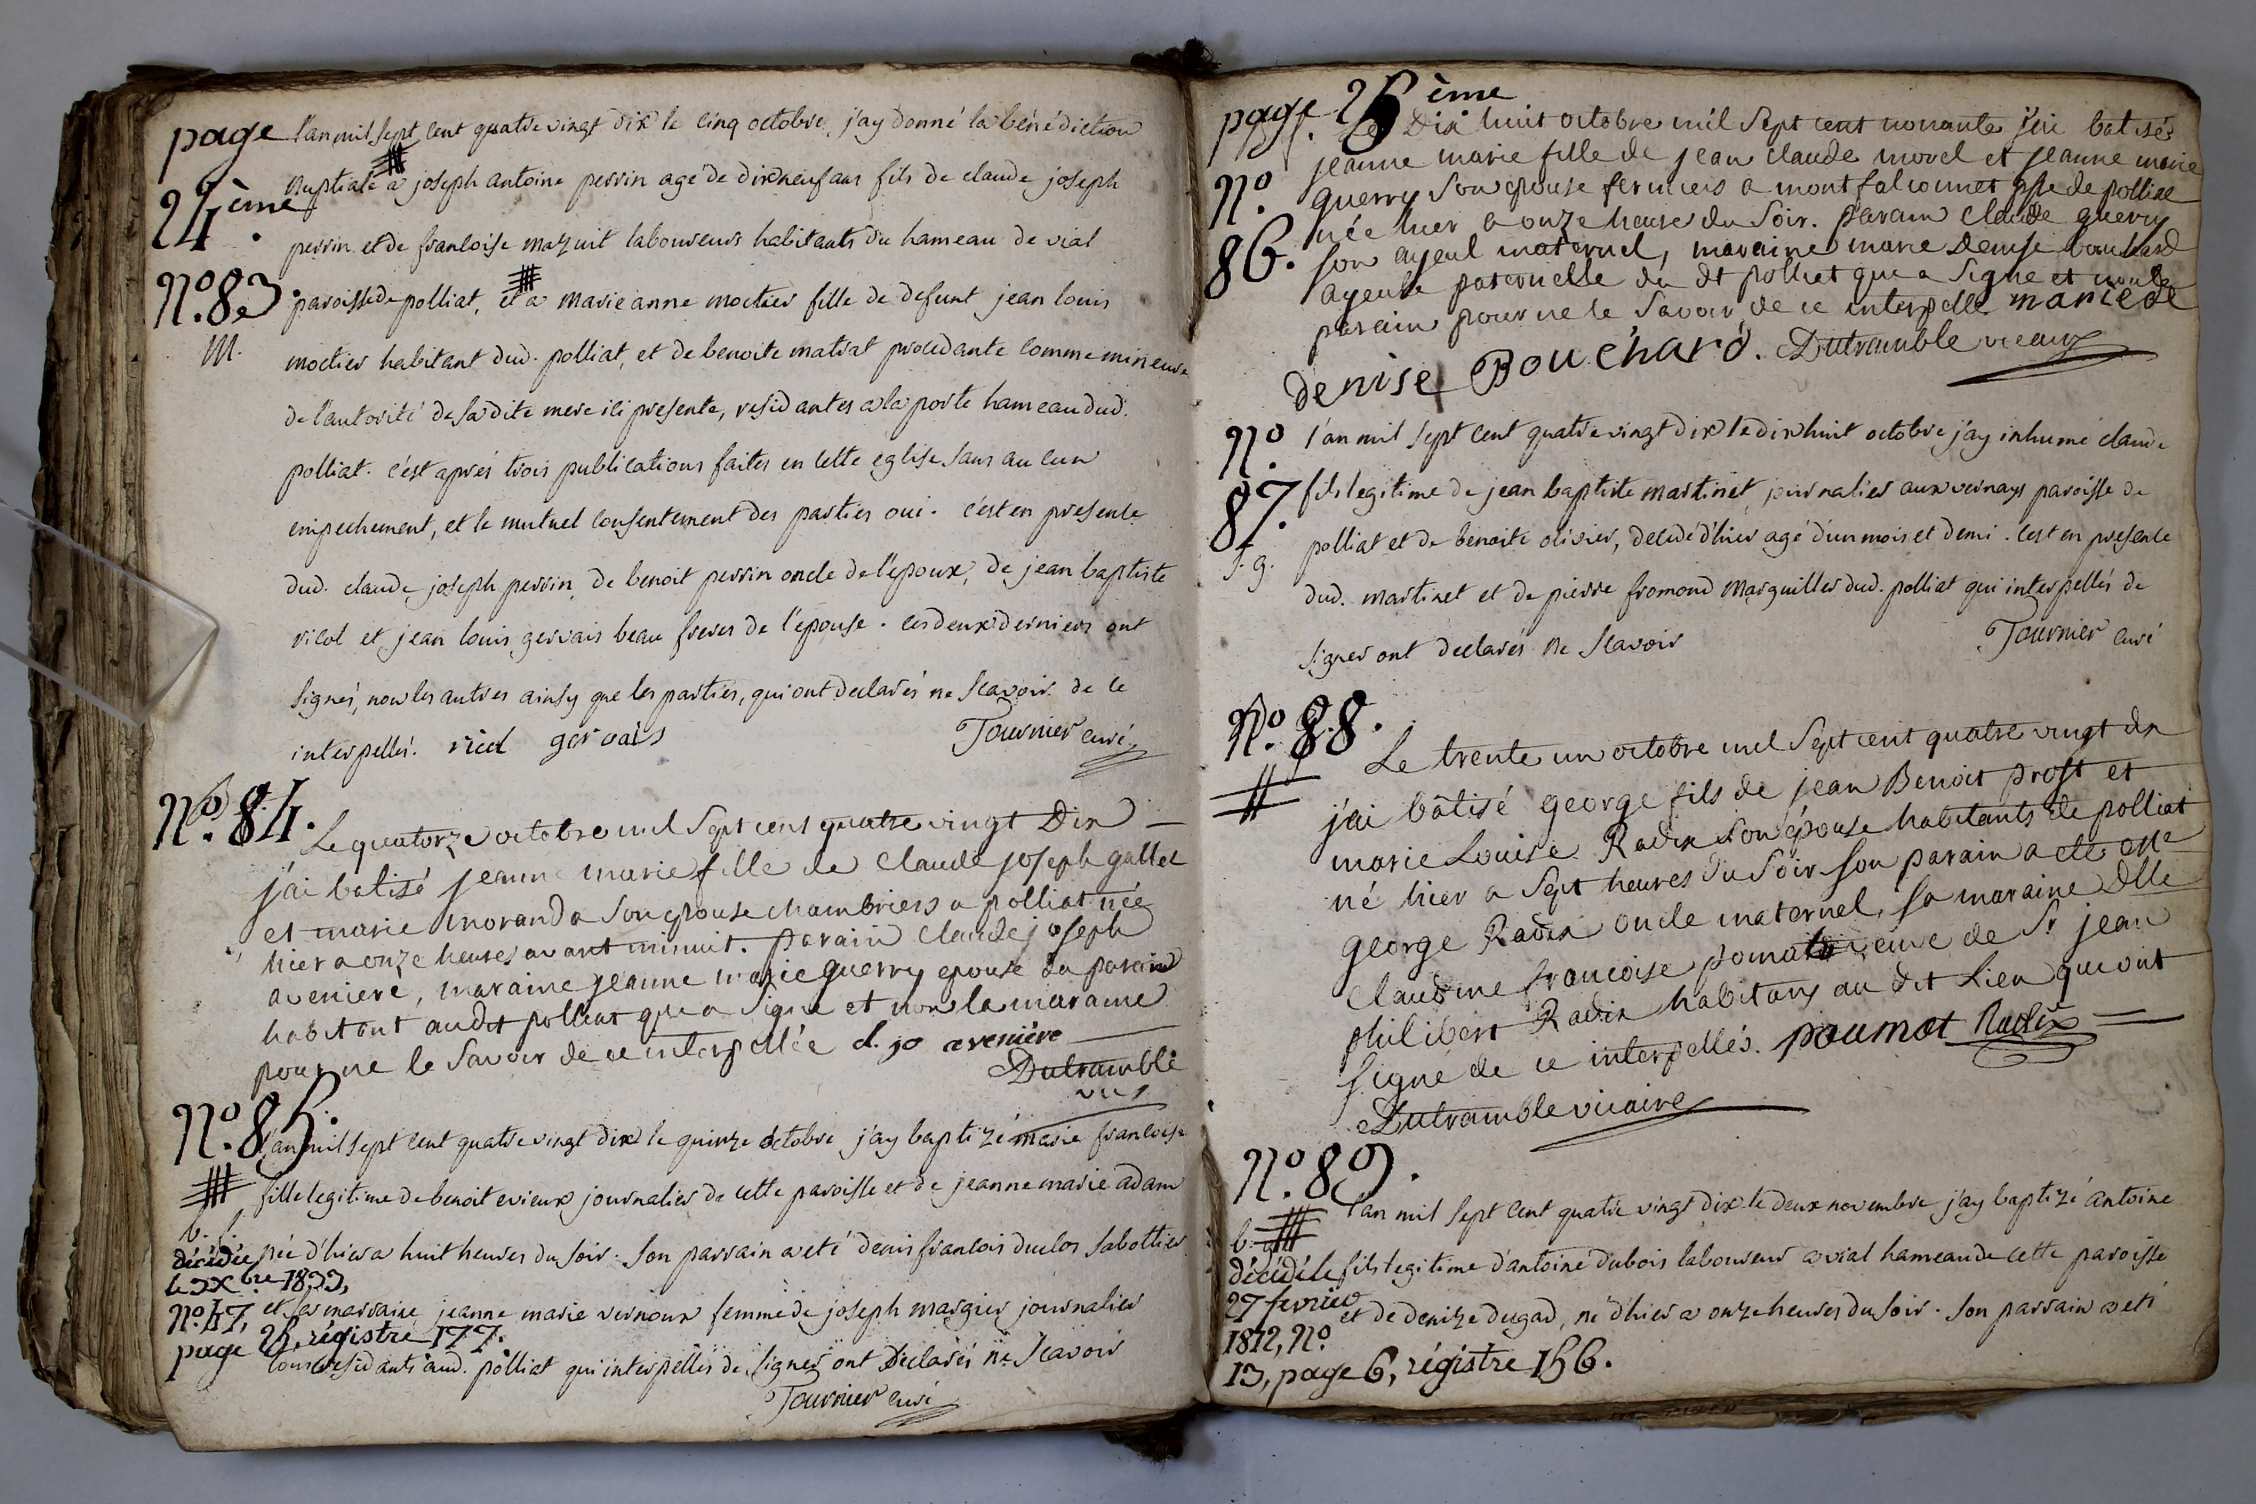 page
24ème.
l'an mil sept cent quatre vingt dix le cinq octobre, j'ay donné la bénédiction
nuptiale a joseph antoine perrin agé de dix neuf ans fils de claude joseph
perrin et de francoise mazuit laboureurs habitants du hameau de vial
n°. 83.
paroisse de polliat, et a marie anne moctier fille de defunt jean louis
m.
moctier habitant dud. polliat, et de benoite matrat procedante comme mineure
de l'autorité de sa dite mere ici presente, residantes a la poste hameau dud.
polliat. c'est aprés trois publications faites en cette eglise sans aucun
empechement, et le mutuel consentement des parties oui. c'est en presence
dud. claude joseph perrin, de benoit perrin oncle de l'epoux, de jean baptiste
ricol et jean louis gervais beau freres de l'epouse. ces deux derniers ont
signés, non les autres ainsy que les parties, qui ont declarés ne scavoir de ce
interpellés. ricol gervais Tournier curé
n°. 84.
Le quatorze octobre mil sept cent quatre vingt Dix
j'ai batisé jeanne marie fille de claude joseph gallet
et marie morand a son epouse chambriers a polliat née
hier a onze heures avant minuit. parain claude joseph
aveniere, maraine jeanne marie guerry epouse du parain
habitant audit polliat qui a signé et non la maraine
pour ne le savoir de ce interpellée d. jo aveniére
Dutramble
vic
n°. 85.
l'an mil sept cent quatre vingt dix le quinze octobre j'ay baptizé marie francoise
fille legitime de benoit evieux journalier de cette paroisse et de jeanne marie adam
b. f.
née d'hier a huit heures du soir. son parrain a eté denis francois duclos sabottier
décédée
le 3 xbre 1833,
et sa marraine jeanne marie vernoux femme de joseph margier journalier
n° 47,
page 25, régistre 177.
tous residants aud. polliat qui interpellés de signer ont declarés ne scavoir
Tournier curé
page 25ème
Le Dix huit octobre mil sept cent nonante j'ai batisé
jeanne marie fille de jean claude morel et jeanne marie
n°.
86.
guerry son epouse fermiers a montfalconnet psse de polliat
née hier a onze heure du soir. parain claude guerry
son ayeul maternel, maraine marie denise bouchard
ayeule paternelle du dt polliat qui a signé et non le
parain pour ne le savoir de ce interpellé marie de
denise Bouchard. Dutramble vicaire
n°.
87.
l'an mil sept cent quatre vingt dix le dix huit octobre j'ay inhumé claude
fils legitime de jean baptiste martinet, journalier aux vernays paroisse de
polliat et de benoite olivier, decedé d'hier agé d'un mois et demi. c'est en presence
dud. martinet et de pierre fromond marguillier dud. polliat qui interpellés de
signer ont declarés ne scavoir Tournier curé
n°. 88.
Le trente un octobre mil sept cent quatre vingt dix
j'ai bâtisé george fils de jean Benoit prost et
marie Louise Radix son epouse habitants de polliat
né hier a sept heures du soir son parain a eté
george Radix oncle maternel, sa maraine Dlle
claudine francoise pomat veuve de Sr jean
philibert Radix habitans au dit Lieu qui ont
signé de ce interpellés. poumat Radix
Dutramble vicaire
n°. 89.
l'an mil sept cent quatre vingt dix le deux novembre j'ay baptizé antoine
b.
décédé le
fils legitime d'antoine dubois laboureur a vial hameau de cette paroisse
27 fevrier
et de denize dugad, né d'hier a onze heures du soir. son parrain a eté
1812, n°.
13, page 6, régistre 156.